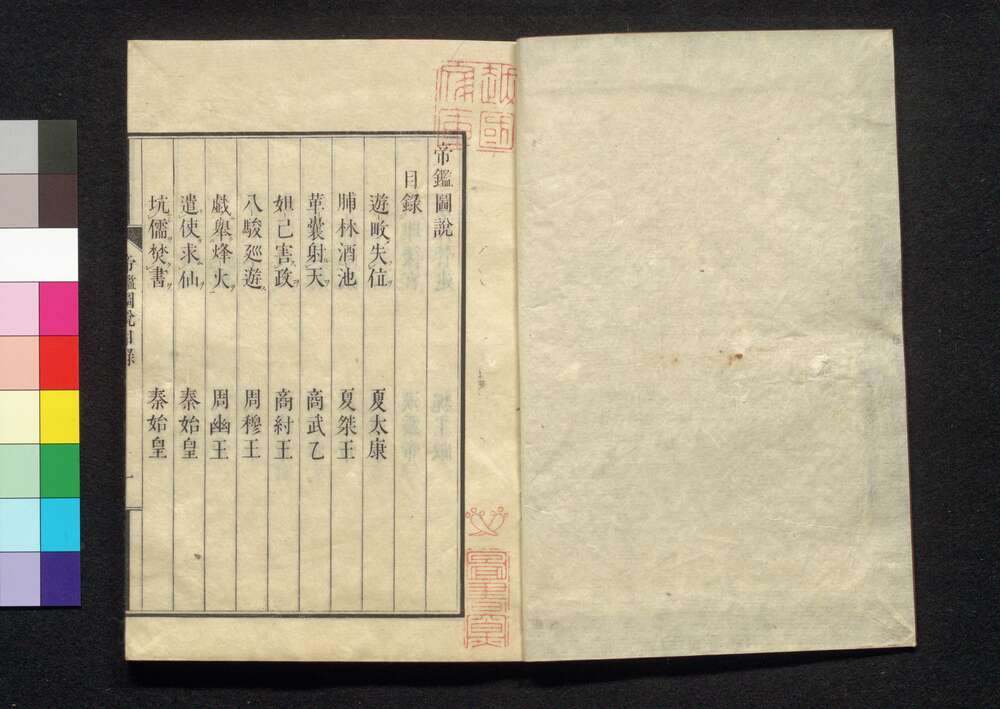 帝鑑圖說
目錄
遊畋失位 夏太康
脯林酒池 夏桀王
革囊射天 商武乙
妲己害政 商紂王
八駿廵遊 周穆王
戲舉烽火 周幽王
遣使求仙 秦始皇
坑儒焚書 秦始皇
帝鑑圖說目錄 一